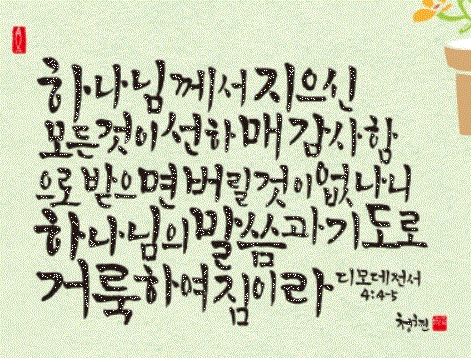 하나님께서 지으신
모든 것이 선하매 감사함
으로 받으면 버릴 것이 없나니
하나님의 말씀과 기도로
거룩하여짐이라 디모데전서
4:4-5